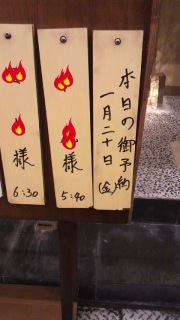 本日の御予約
一月二十日(金)
様
5:40
様
6:30